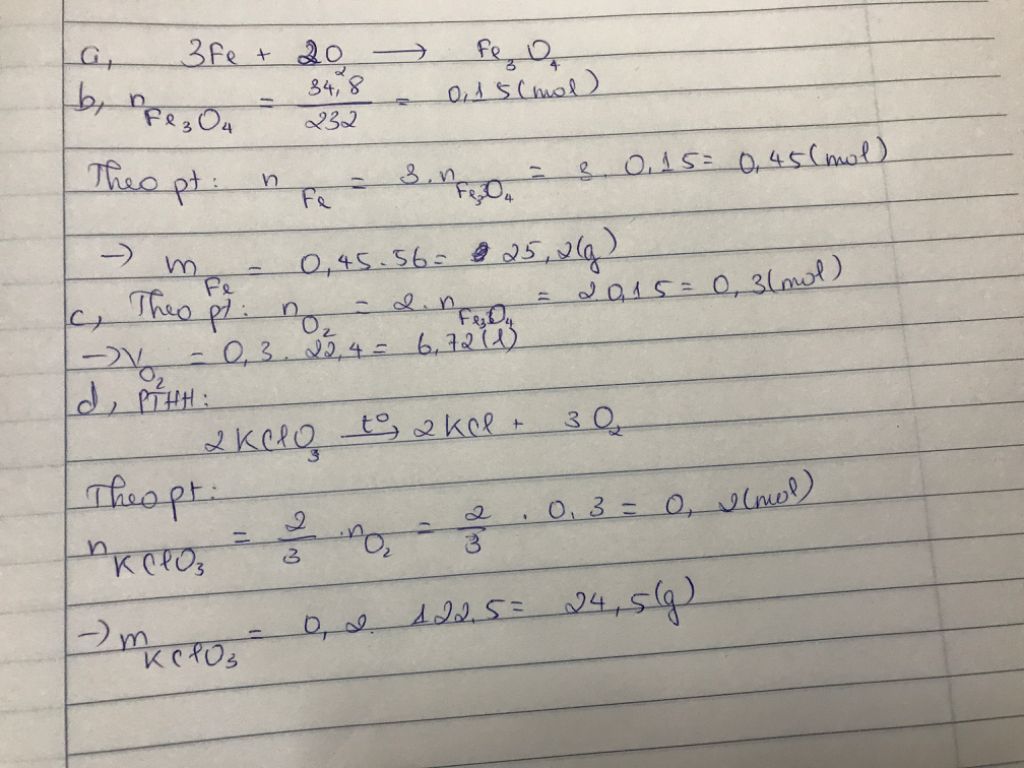 a, 3Fe + 2O₂ → Fe₃O₄
b, n Fe₃O₄ = 34,8/232 = 0,15(mol)
Theo pt: n Fe = 3.n Fe₃O₄ = 3. 0,15 = 0,45(mol)
→ m Fe = 0,45.56 = 25,2(g)
c, Theo pt: n O₂ = 2.n Fe₃O₄ = 2 0,15 = 0,3(mol)
→ V O₂ = 0,3. 22,4 = 6,72(l)
d, PTHH:
2KClO₃ t° → 2KCl + 3O₂
Theo pt:
n KClO₃ = 2/3 .n O₂ = 2/3 . 0,3 = 0,2(mol)
→ m KClO₃ = 0,2. 122,5 = 24,5(g)